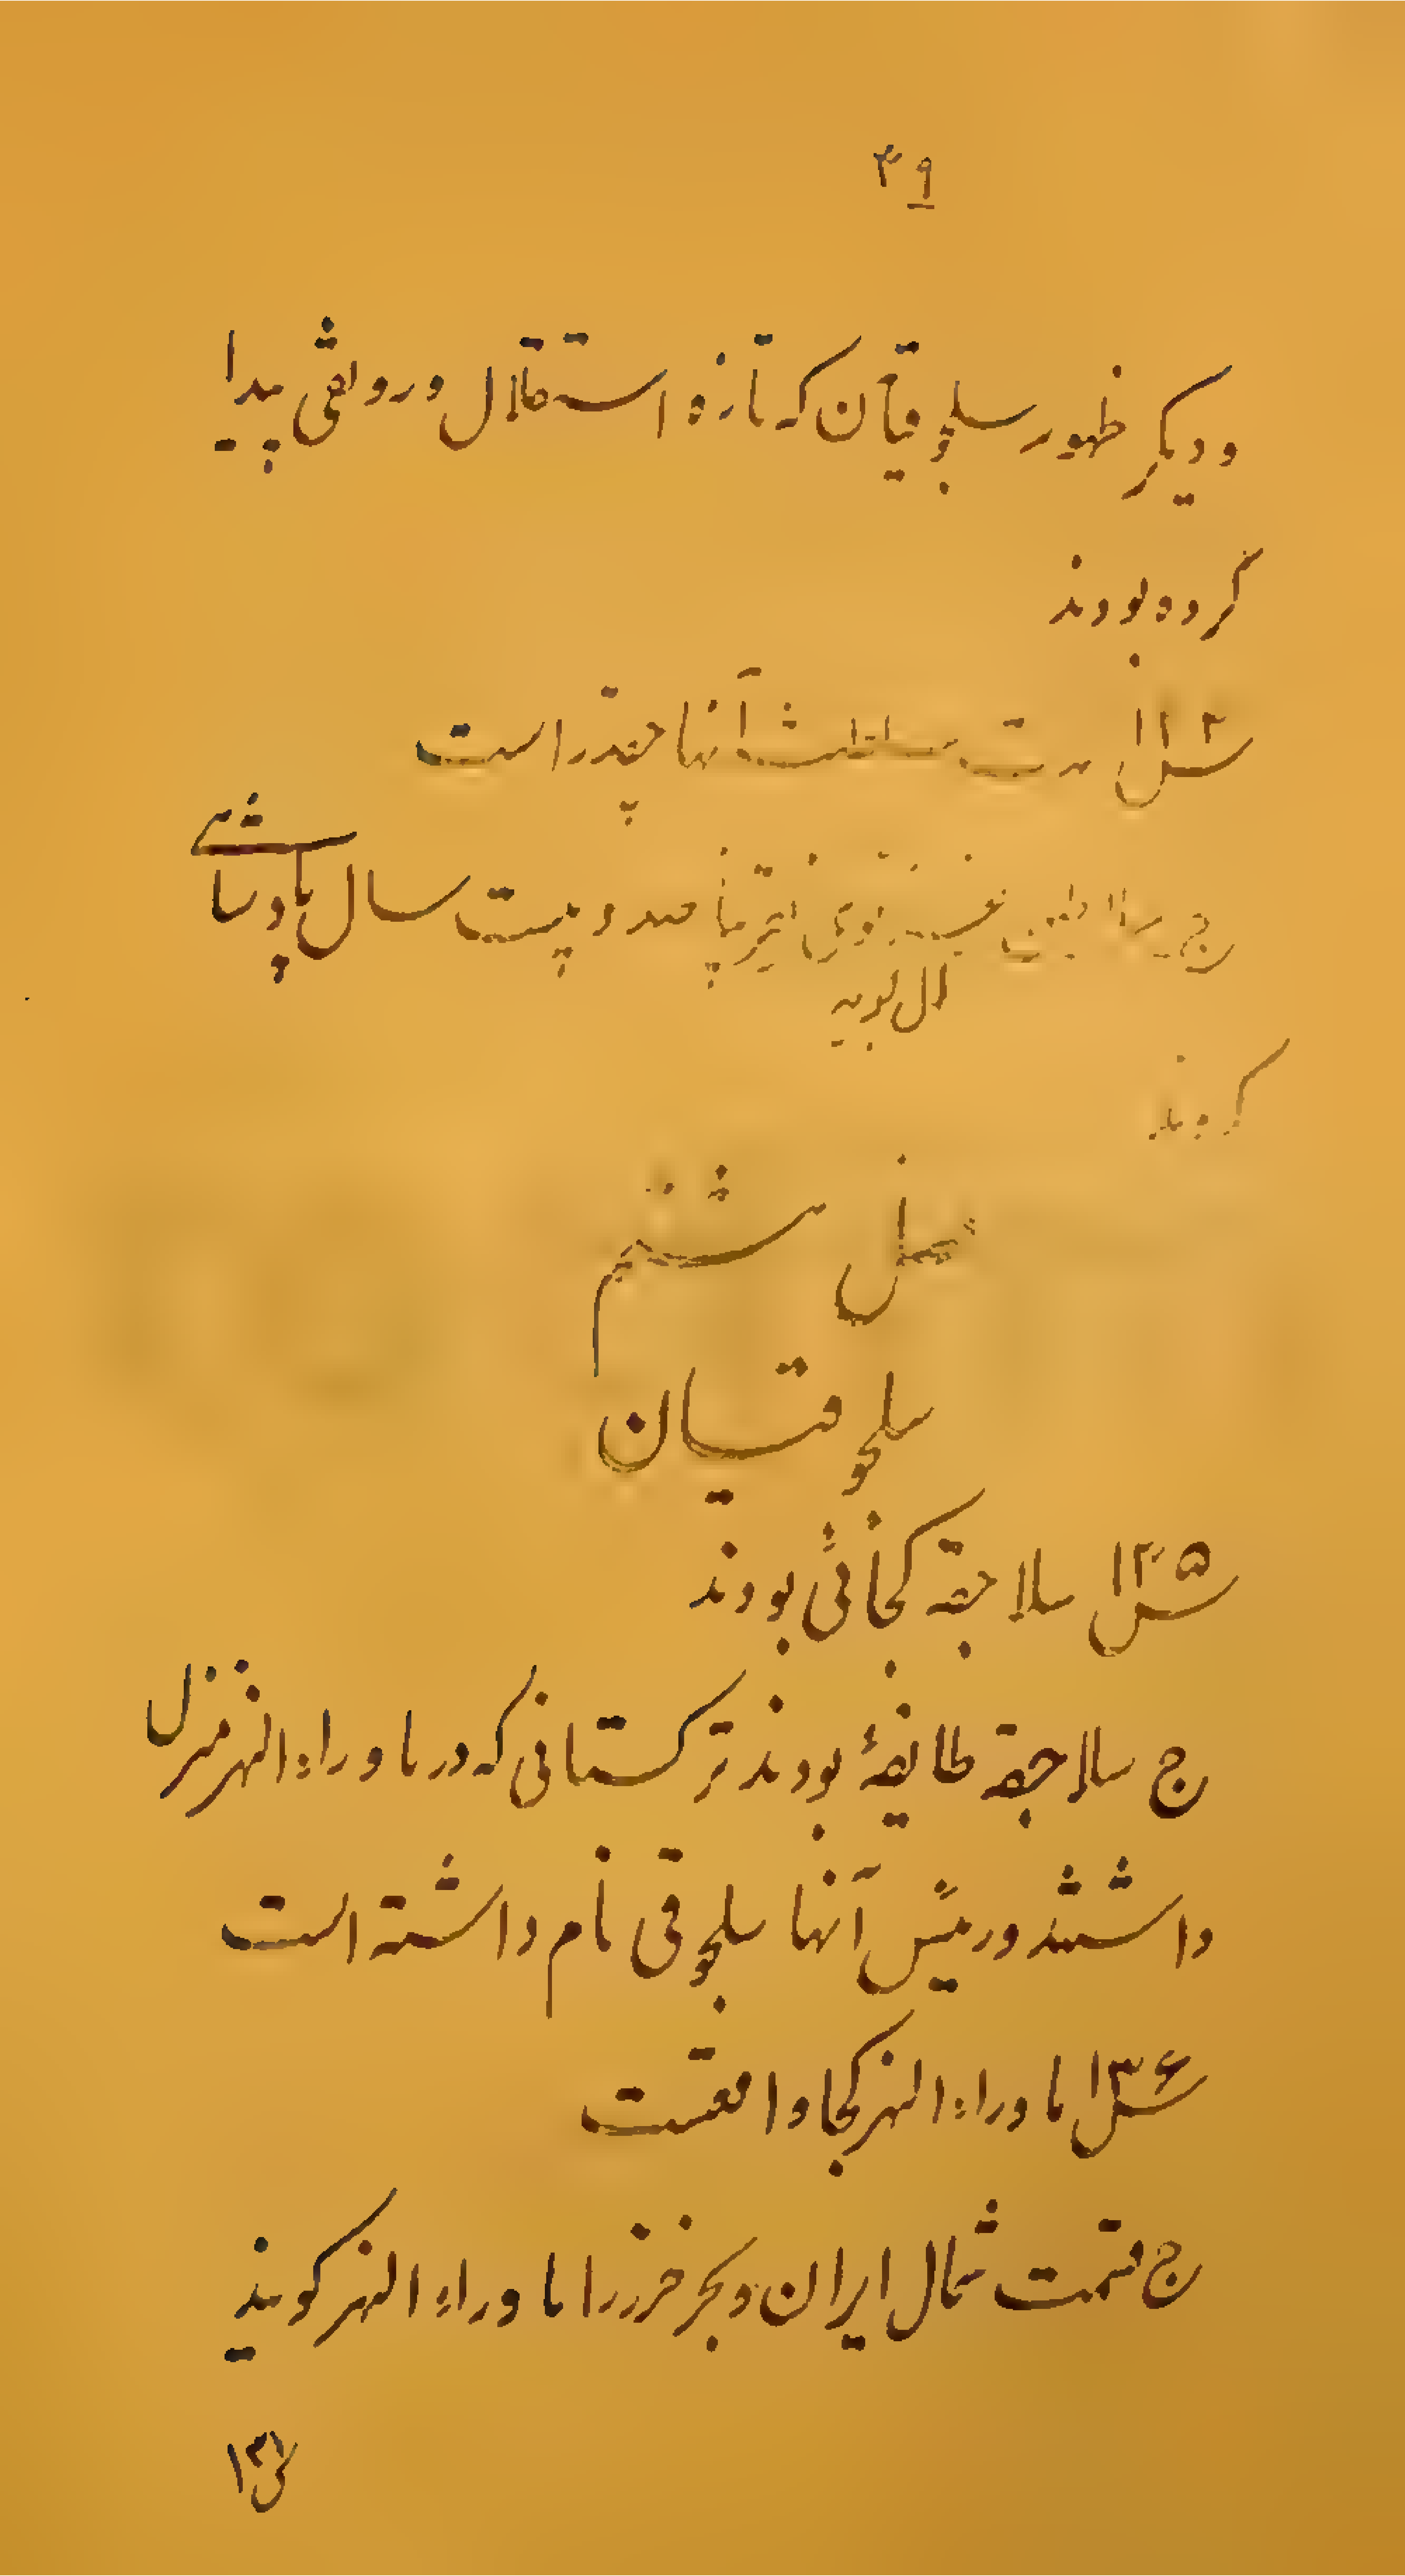 ۳۹
و دیگر ظهور سلجوقیان که تازه استقلال و رونقی پیدا
کرده بودند
س مدت سلطنت آنها چقدر است
ج سلاطین تقریباً صد و بیست سال پادشاهی
ال بویه
کردند
فصل ششم
سلجوقیان
س۱۳۵ سلاجقه کجائی بودند
ج سلاجقه طایفهٔ بودند ترکستانی که در ماوراء النهر منزل
داشتند و رئیس آنها سلجوقی نام داشته است
س۱۳۶ ماوراء النهر کجا واقعست
ج قسمت شمال ایران و بحر خزر را ماوراء النهر گویند